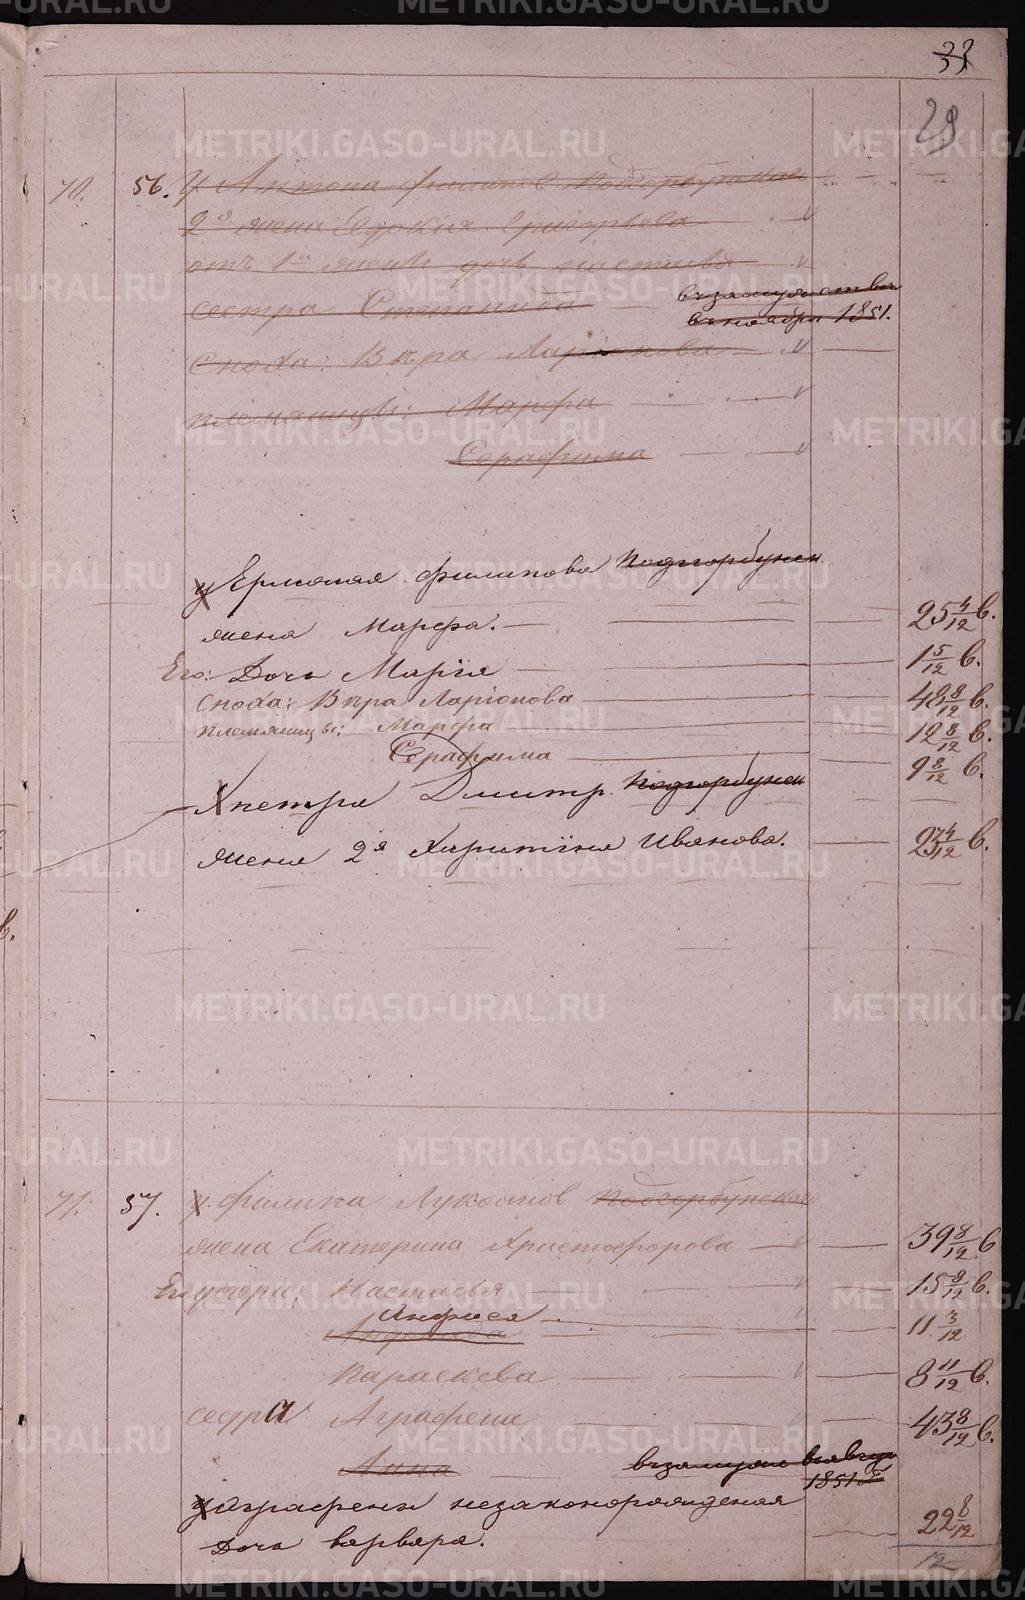 33
29
70. 56. У Антона Филипов Подгорбунскаго
2я жена Евдокия Григорьева
отъ 1й жены дочь Настасья
сестра Степанида взамужстве
в ноября 1851.
Сноха: Вѣра Ларіонова
племянницы: Марфа
Серафима
у Ермолая Филипова Подгорбунск
жена Марфа. 25 4/12 в.
Его: Дочь Марія 1 5/12 в.
сноха: Вѣра Ларіонова 48 8/12 в.
племянницы: Марфа 12 8/12 в.
Серафима 9 8/12 в.
У петра Дмитр. Подгорбунск
жена 2я Харитінія Иванова. 23 4/12 в.
71. 57. у. Филипа Лукоянов Подгорбунскаго
жена Екатерина Христофорова 39 8/12 в
Его дочери: Настасья 15 8/12 в.
Анфиса 11 3/12
Параскева 8 11/12 в.
сестра Аграфена 43 8/12 в.
Анна взамужс
1851 г
у Аграфены незаконорожденая
Дочь варвара. 22 8/12
12
METRIKI.GASO-URAL.RU